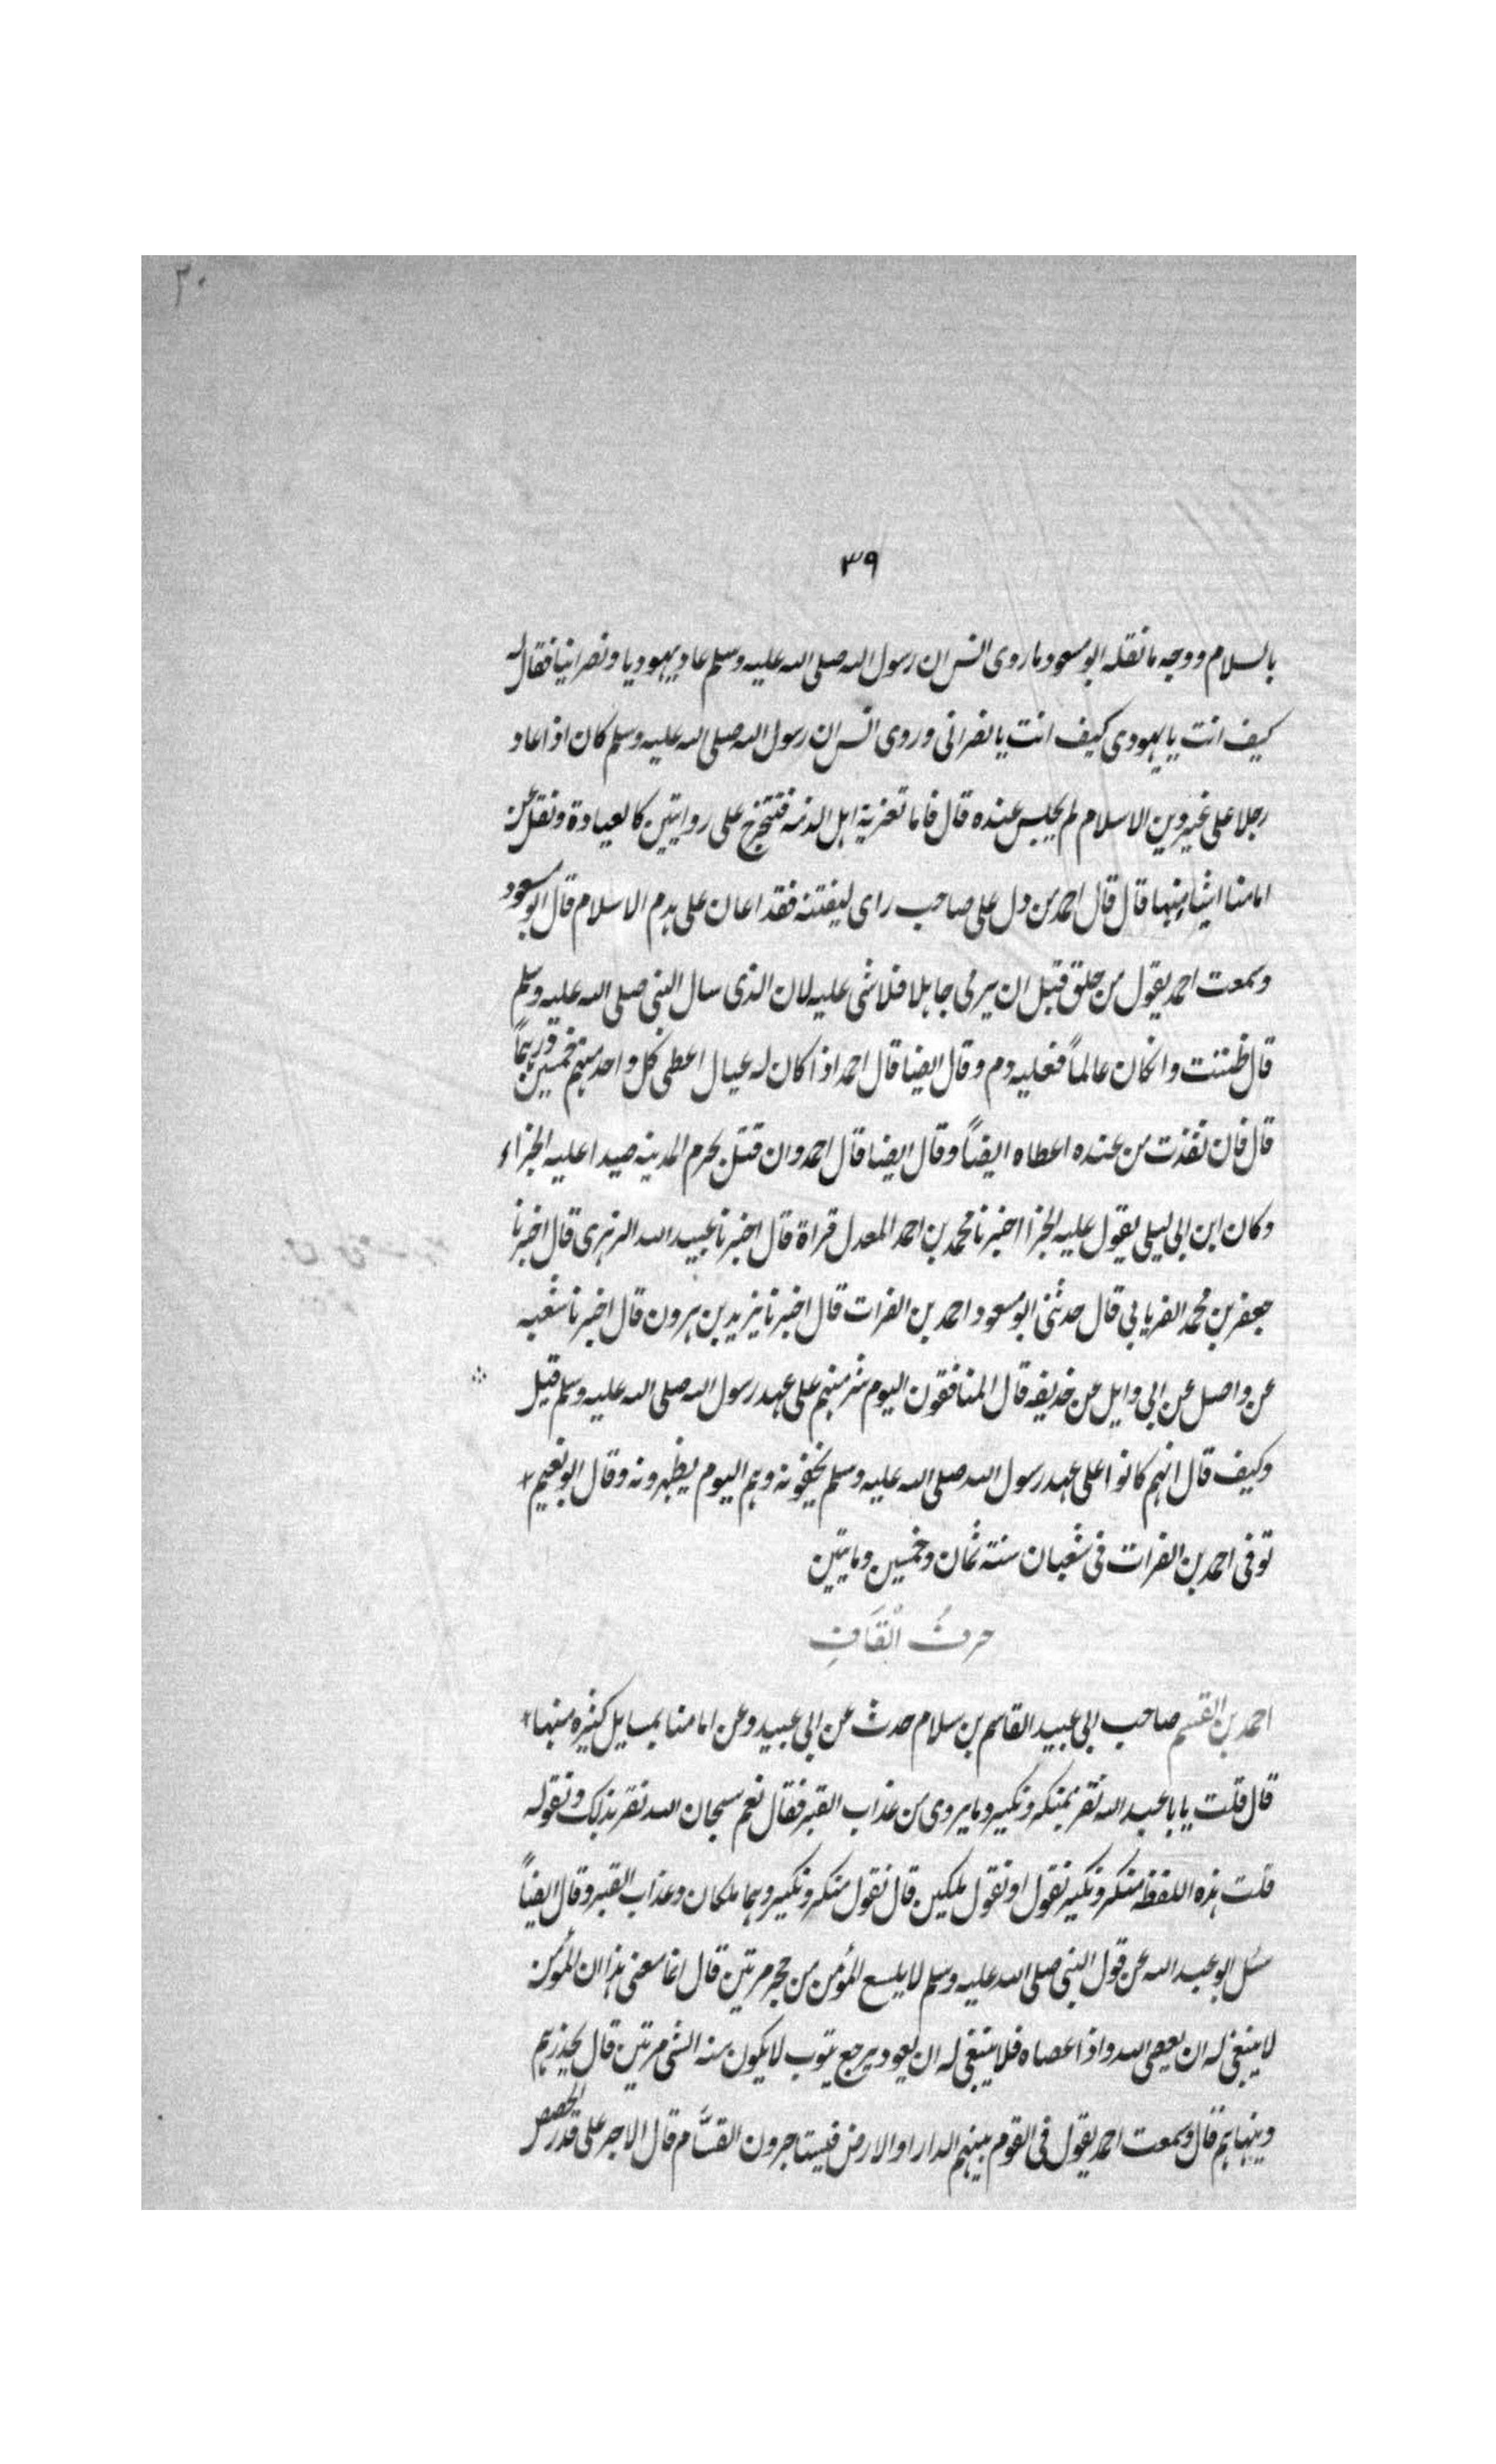 ٣٠
٣٩
بالسلام ووجه ما نقله ابو مسعود ما روى انس ان رسول الله صلى الله عليه وسلم عاد يهوديا ونصرانيا فقال له
كيف انت يا يهودى كيف انت يا نصرانى وروى انس ان رسول الله صلى الله عليه وسلم كان اذا عاد
رجلا على غير دين الاسلام لم يجلس عنده قال فاما تعزية اهل الذمه فتتخرج على روايتين كالعيادة ونقل عن
امامنا اشيا منها قال قال احمد من دل على صاحب راى ليفتنه فقد اعان على هدم الاسلام قال ابو مسعود
وسمعت احمد يقول من حلق قبل ان يرمى جاهلا فلا شى عليه لان الذى سال النبى صلى الله عليه وسلم
قال ظننت وانكان عالماً فعليه دم وقال ايضا قال احمد اذا كان له عيال اعطى كل واحد منهم خمسين درهماً
قال فان نفذت من عنده اعطاه ايضاً وقال ايضا قال احمد وان قتل بحرم المدينه صيدا عليه الجزاء
وكان ابن ابى ليلى يقول عليه الجزا اخبرنا محمد بن احمد المعدل قراة قال اخبرنا عبيد الله الزهرى قال اخبرنا
جعفر بن محمد الفريابى قال حدثنى ابو مسعود احمد بن الفرات قال اخبرنا يزيد بن هرون قال اخبرنا شعبه
عن واصل عن ابى وايل عن حذيفه قال المنافقون اليوم شر منهم على عهد رسول الله صلى الله عليه وسلم قيل
وكيف قال انهم كانوا على عهد رسول الله صلى الله عليه وسلم يخفونه وهم اليوم يظهرونه وقال ابو نعيم
توفى احمد بن الفرات فى شعبان سنة ثمان وخمسين ومايتين
حرفُ القَافِ
احمد بن القسم صاحب ابى عبيد القاسم بن سلام حدث عن ابى عبيد وعن امامنا بمسايل كثيره منها
قال قلت يا با عبد الله نقر بمنكر ونكير وما يروى من عذاب القبر فقال نعم سبحان الله نقر بذلك ونقوله
قلت هذه اللفظه منكر ونكير نقول او نقول ملكين قال نقول منكر ونكير وهما ملكان وعذاب القبر وقال ايضاً
سئل ابو عبد الله عن قول النبى صلى الله عليه وسلم لا يلسع المؤمن من جحر مرتين قال انما معنى هذا ان المؤمن
لا ينبغى له ان يعصى الله واذا عصاه فلا ينبغى له ان يعود يرجع يتوب لا يكون منه الشى مرتين قال يحذرهم
وينهاهم قال وسمعت احمد يقول فى القوم بينهم الدار او الارض فيستاجرون القسَّام قال الاجر على قدر الحصص